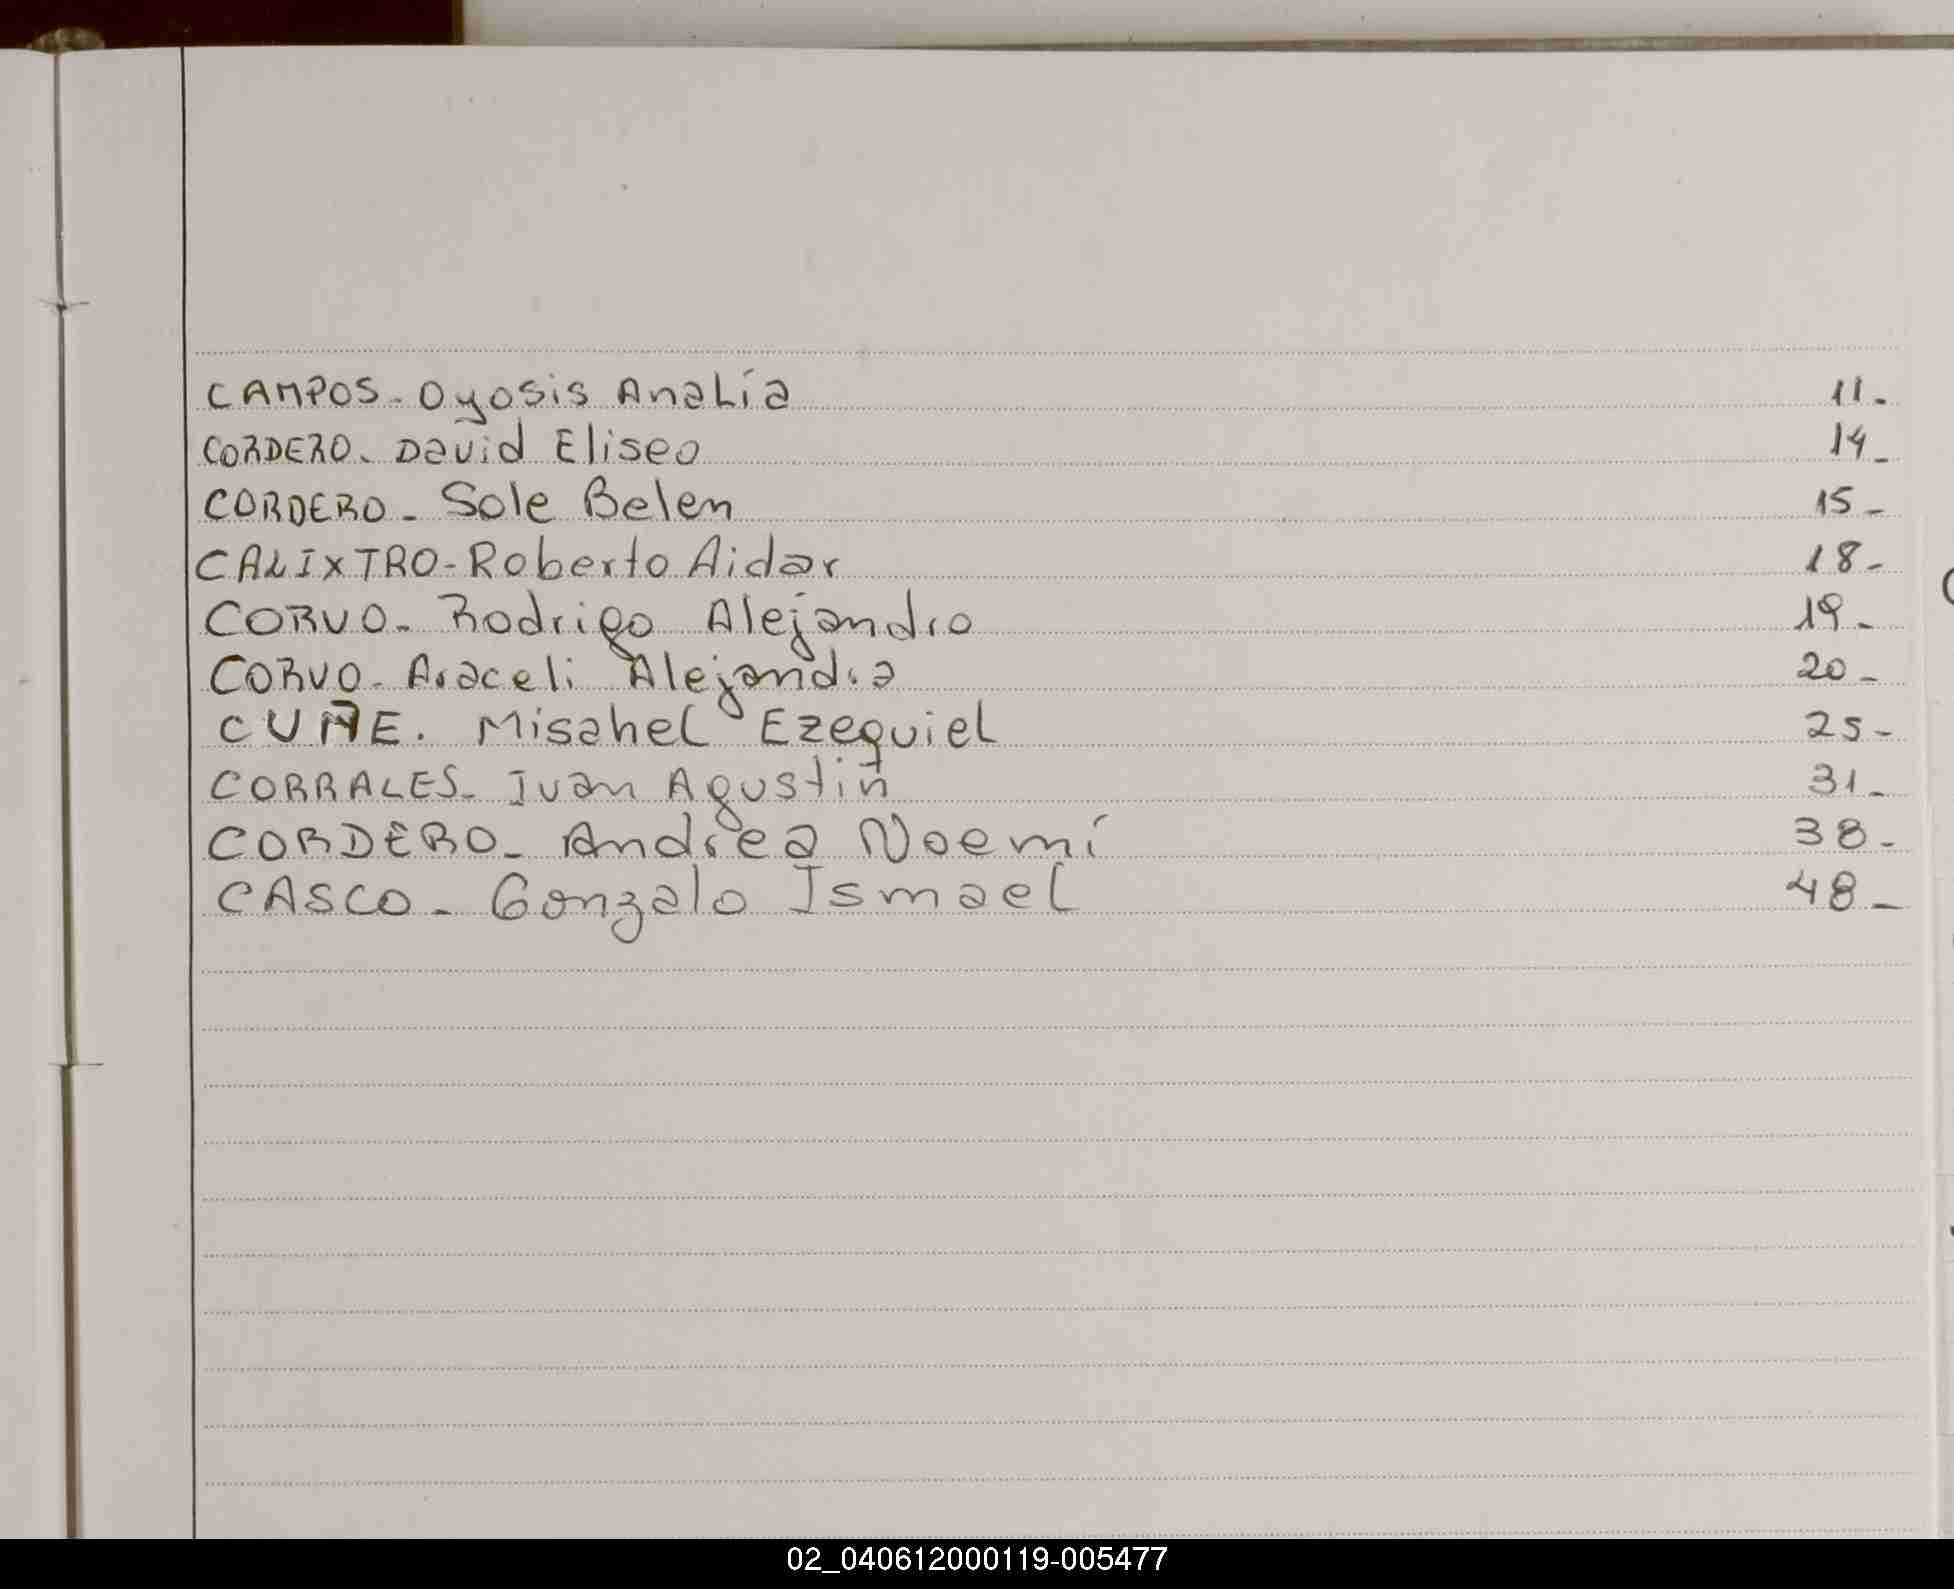 CAMPOS - Oyosis Analía 11-
CORDERO - David Eliseo 14-
CORDERO - Sole Belen 15-
CALIXTRO - Roberto Aidar 18-
CORVO - Rodrigo Alejandro 19-
CORVO - Araceli Alejandra 20-
CUÑE. Misahel Ezequiel 25-
CORRALES - Ivan Agustin 31-
CORDERO - Andrea Noemí 38-
CASCO - Gonzalo Ismael 48-
02_040612000119-005477